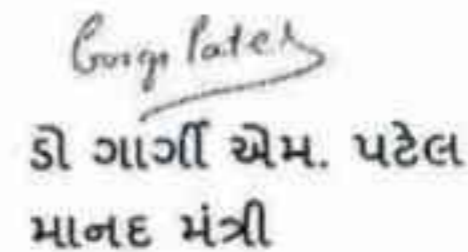 Gargi Patel
ડો ગાર્ગી એમ. પટેલ
માનદ મંત્રી